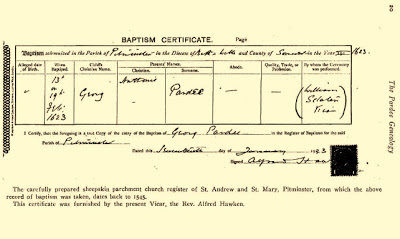 BAPTISM CERTIFICATE. Page
Baptism solemnized in the Parish of Pitminster in the Diocese of Bath & Wells and County of Somerset in the Year 1623.
Alleged date of Birth. When Baptized. Child's Christian Name. Parents' Names. Abode. Quality, Trade, or Profession. By whom the Ceremony was performed.
Christian. Surname.
13th or 19th Feb 1623 Georg Anthonie Pardee — — (William Sclater Vicar)
I Certify, that the foregoing is a true Copy of the entry of the Baptism of Georg Pardee in the Register of Baptisms for the said
Parish of Pitminster
Dated this Seventeenth day of January
Signed Alfred
The carefully prepared sheepskin parchment church register of St. Andrew and St. Mary, Pitminster, from which the above
record of baptism was taken, dates back to 1545.
This certificate was furnished by the present Vicar, the Rev. Alfred Hawken.
20
The Pardee Genealogy